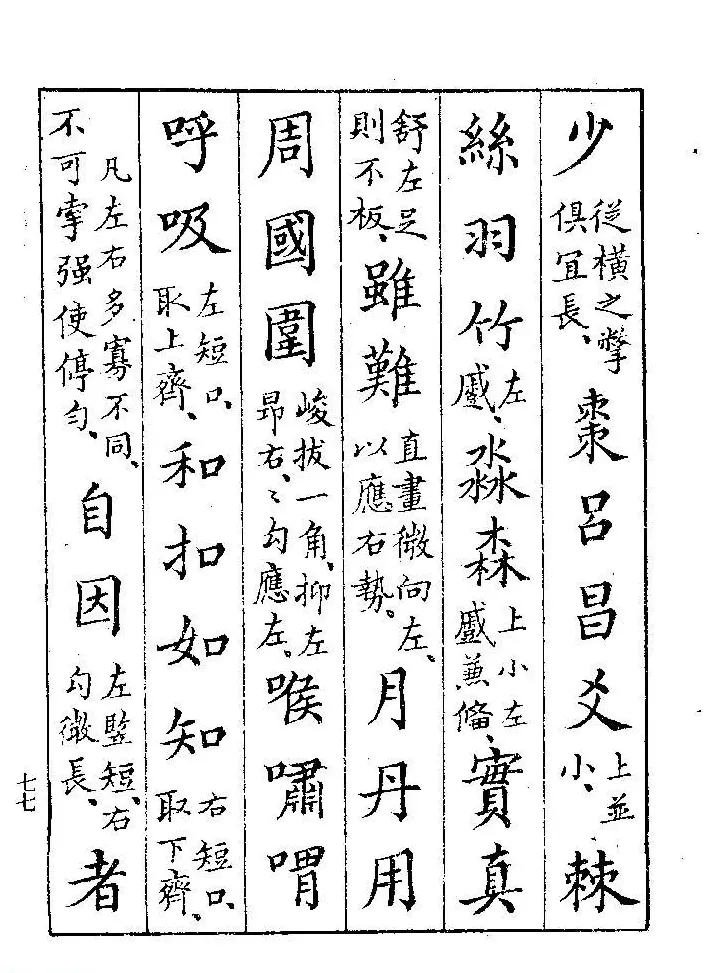 少從橫之撆俱宜長、棗呂昌爻上並小、棘
絲羽竹左蹙、淼森上小左蹙兼俻、實真
舒左足則不板、雖難直畫微向左、以應右勢。月丹用
周國圍峻拔一角、抑左昂右、〻勾應左。喉嘯喟
呼吸左短口、取上齊、和扣如知右短口、取下齊、
凡左右多寡不同、不可牽强使停勻、自因左竪短、右勾微長、者
七七